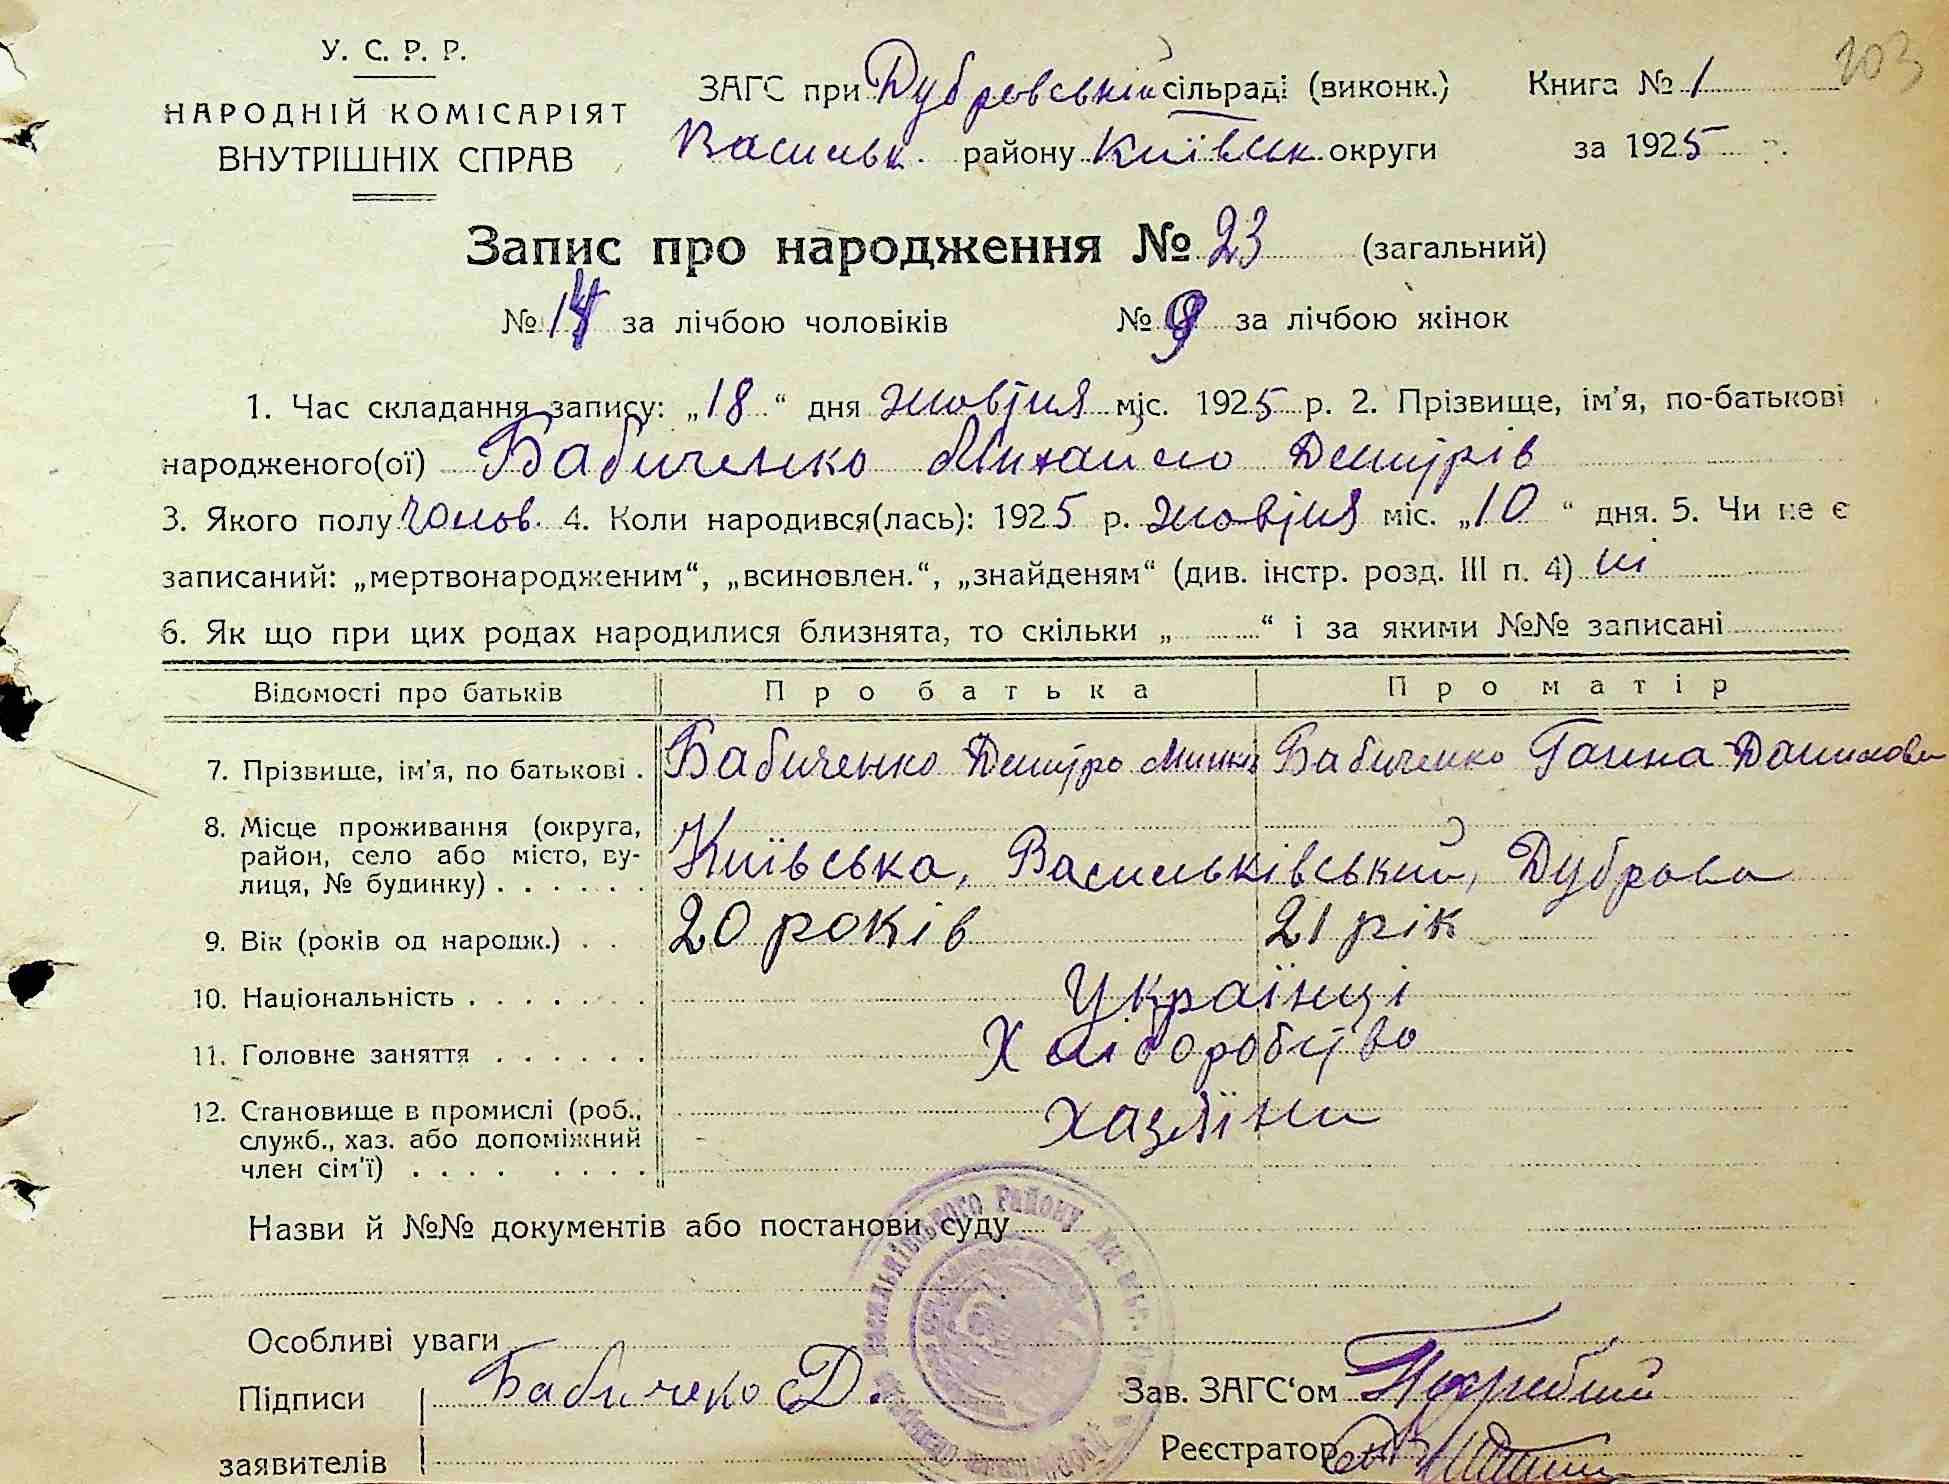 203
У. С. Р. Р.
НАРОДНІЙ КОМІСАРІЯТ
ВНУТРІШНІХ СПРАВ
ЗАГС при Дубровській сільраді (виконк.) Книга № 1
Васильк. району Київськ. округи за 1925 р.
Запис про народження № 23 (загальний)
№ 14 за лічбою чоловіків № 9 за лічбою жінок
1. Час складання запису: „18“ дня жовтня міс. 1925 р. 2. Прізвище, ім'я, по-батькові
народженого(ої) Бабиченко Михайло Дмитрів
3. Якого полу чолов. 4. Коли народився(лась): 1925 р. жовтня міс. „10“ дня. 5. Чи не є
записаний: „мертвонародженим“, „всиновлен.“, „знайденям“ (див. інстр. розд. III п. 4) ні
6. Як що при цих родах народилися близнята, то скільки „ “ і за якими №№ записані
Відомості про батьків Про батька Про матір
7. Прізвище, ім'я, по батькові . Бабиченко Дмитро Бабиченко Ганна Данилови
8. Місце проживання (округа,
район, село або місто, ву-
лиця, № будинку) . . . . . . Київська, Васильківський, Дуброва
9. Вік (років од народж.) . . 20 років 21 рік
10. Національність . . . . . . . Українці
11. Головне заняття . . . . . . Хліборобство
12. Становище в промислі (роб.,
служб., хаз. або допоміжний
член сім'ї) . . . . . . . . Хазяїни
Назви й №№ документів або постанови суду
Особливі уваги
Підписи Бабичеко Д. Зав. ЗАГС‘ом Погребний
заявителів Реєстратор
Васильківського району